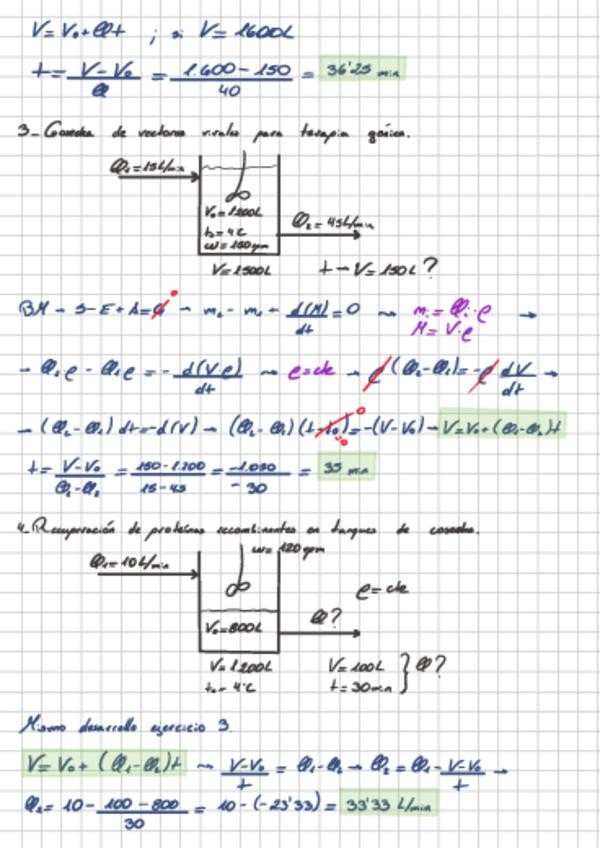 V = V₀ + Qt ; si V = 1600L
t = (V - V₀)/Q = (1.600 - 150)/40 = 36'25 min
3- Cosecha de vectores virales para terapia génica.
Q₁ = 15L/min
V₀ = 1200L
t₀ = 4ºC
ω = 150rpm
Q₂ = 45L/min
V = 1500L
t → V = 150L?
BM → S - E + A = G⁰ → m₂ - m₁ + d(M)/dt = 0 ⇝ mᵢ = Qᵢ·ρ →
M = V·ρ
→ Q₂ρ - Q₁ρ = - d(Vρ)/dt ⇝ ρ = cte → ρ(Q₂ - Q₁) = -ρ dV/dt →
→ (Q₂ - Q₁) dt = -d(V) → (Q₂ - Q₁)(t - t₀) = -(V - V₀) → V = V₀ + (Q₁ - Q₂)t
t = (V - V₀)/(Q₁ - Q₂) = (150 - 1.200)/(15 - 45) = -1.050/-30 = 35 min
4- Recuperación de proteínas recombinantes en tanques de cosecha.
ω = 120rpm
Q₁ = 10L/min
ρ = cte
Q?
V₀ = 800L
V = 1200L
t₀ = 4ºC
V = 100L
t = 30min } Q?
Mismo desarrollo ejercicio 3.
V = V₀ + (Q₁ - Q₂)t ⇝ (V - V₀)/t = Q₁ - Q₂ → Q₂ = Q₁ - (V - V₀)/t →
Q₂ = 10 - (100 - 800)/30 = 10 - (-23'33) = 33'33 L/min